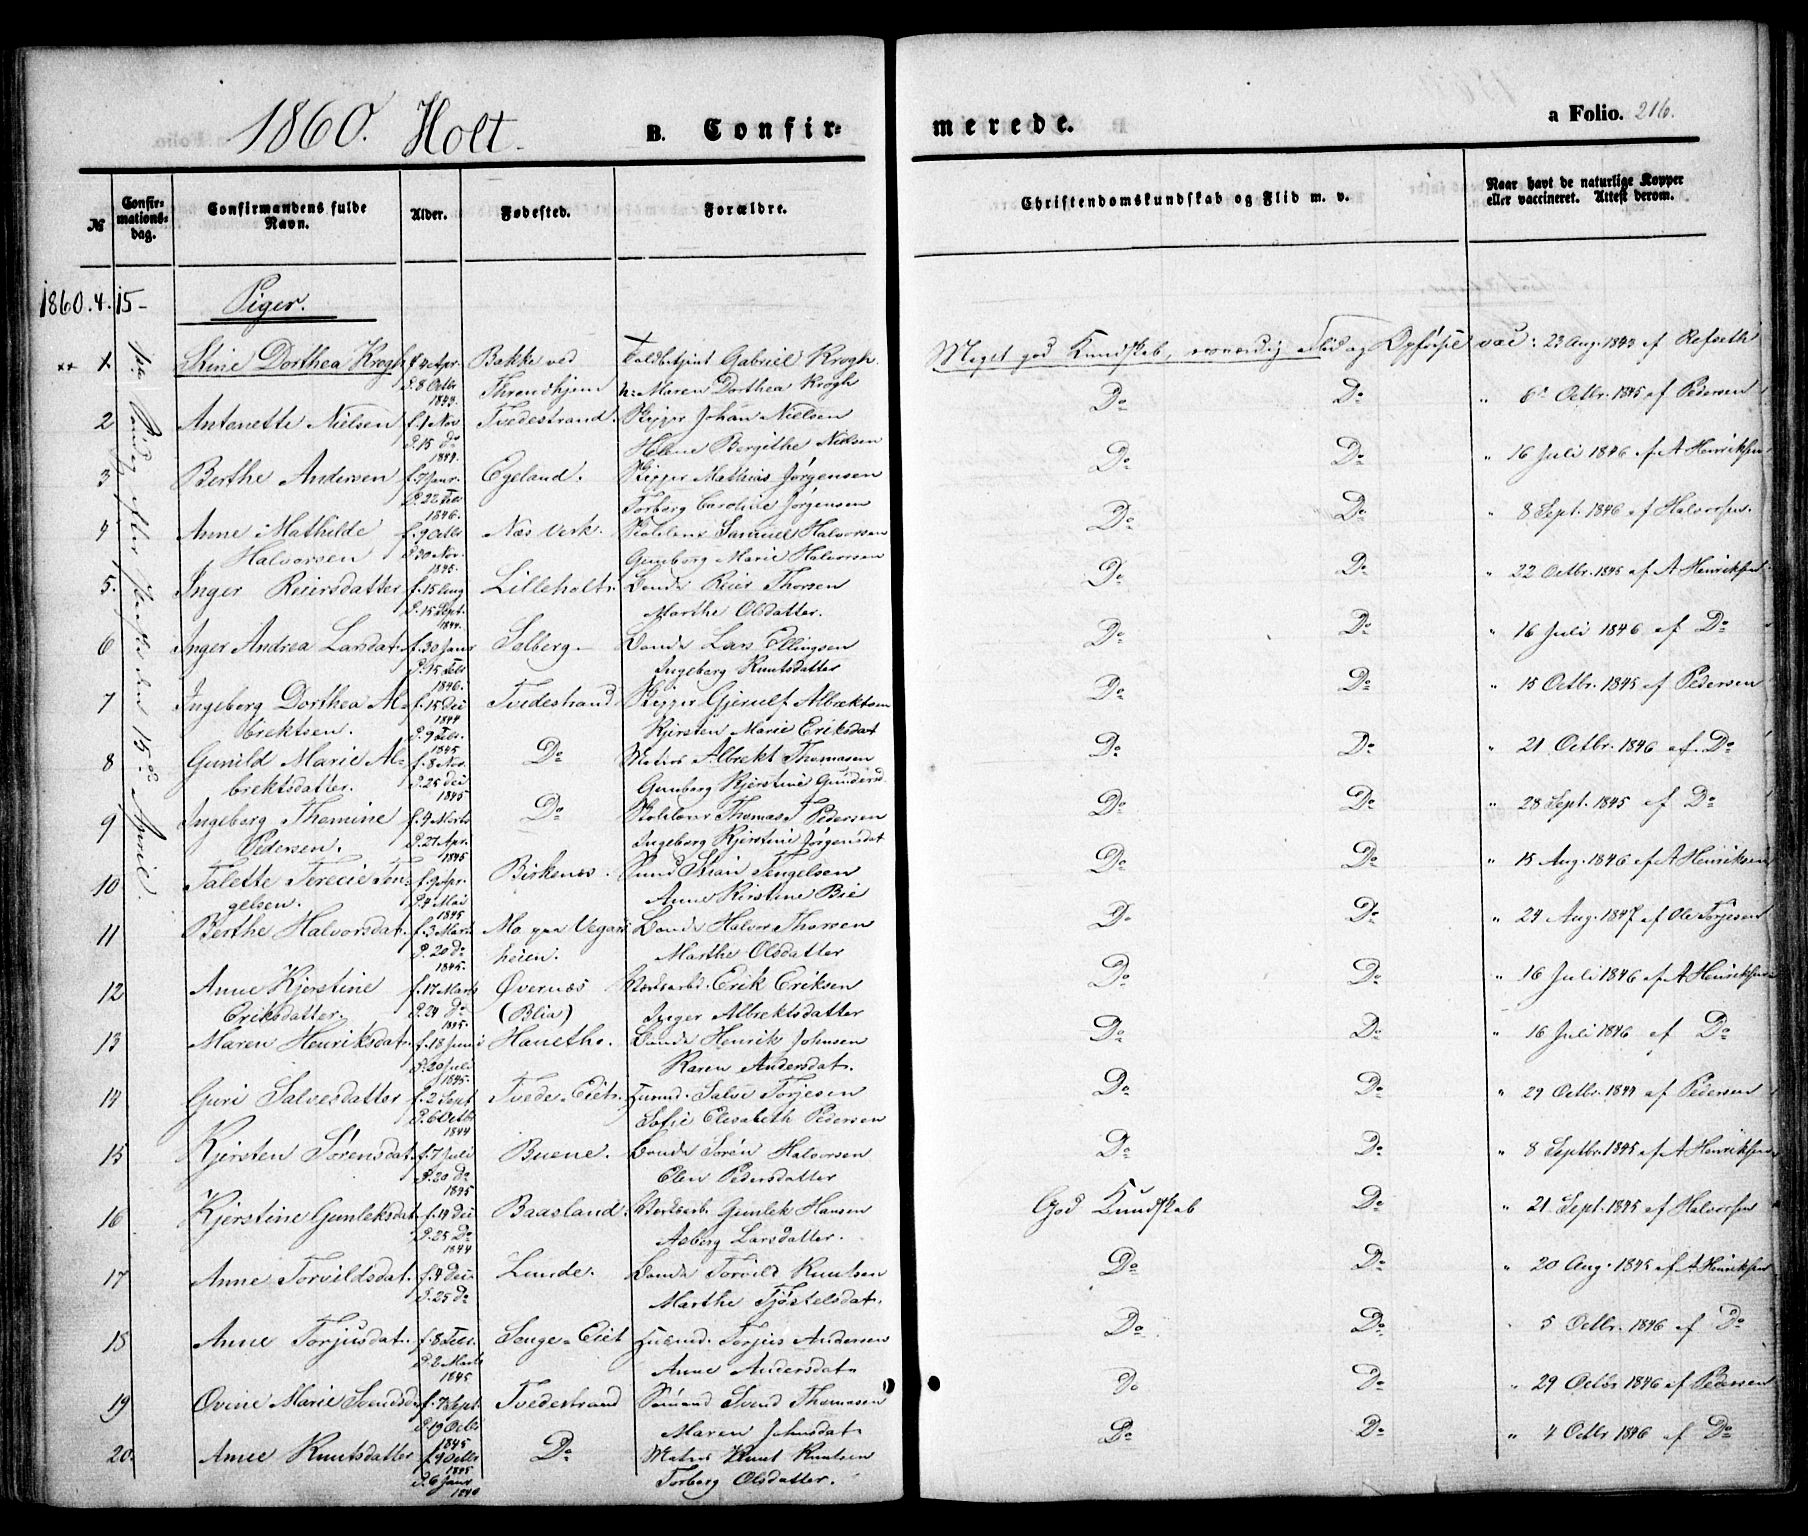 1860. Holt. B. Confirmerede. a Folio. 216.
№ Confirmationsdag. Confirmandens fulde Navn. Alder. Fødested. Forældre. Christendomskundskab og Flid m. v. Naar havt de naturlige Kopper eller vaccineret. Attest derom.
1860. 4. 15 – Piger.
1ste Søndag efter Paaske den 15de April
1 Stine Dorthea Krogh f. 4 Apr. Bakke ved Toldbetjent Gabriel Krogh Meget god Kundskab, Flid og Opførsel vac: 23 Aug. 1843 af Refseth
D. 8 Octbr 1843. Throndhjem Maren Dorthea Krogh
2 Antonette Nielsen f. 1 Nov Tvedestrand. Skipper Johan Nielsen Do Do " 6 Octbr. 1845 af Pedersen
D. 15 Do 1844. Helene Bergithe Nielsen
3 Berthe Andersen f. 7 Janr. Egeland. Skipper Mathias Jørgensen Do Do " 16 Juli 1846 af A Henriksen
D. 22 Feb 1846. Torborg Caroline Jørgensen
4 Anne Mathilde f. 9 Octbr Næs Verk. Samuel Halvorsen Do Do " 8 Sept. 1846 af Halvorsen.
Halvorsen D. 30 Nov. 1845. Gunborg Marie Halvorsen
5. Inger Reiersdatter f. 15 Aug Lilleholt. Bonde Reier Thorsen Do Do " 22 Octbr. 1845 af A Henriksen
D. 15 Sept. 1844. Marthe Olsdatter.
6 Inger Andrea Larsdat. f. 30 Janr Solberg. Bonde Lars Ellingsen Do Do " 16 Juli 1846 af Do
D. 15 Feb 1846. Ingeborg Knutsdatter
7 Ingeborg Dorthea Al= f. 15 Dec 1844 Tvedestrand Skipper Gjerulf Albrektsen Do Do " 15 Octbr. 1845 af Pedersen
brektsen. D. 9 Febr. 1845 Kjersten Marie Eriksdat
8 Gunild Marie Al= f. 8 Nov. Do Matros Albrekt Thomasen Do Do " 21 Octbr. 1846 af Do
brektsdatter. D. 25 Dec 1845 Gunborg Kjerstine Gundersd
9 Ingeborg Thomine f. 4 Marts Do Thomas T Pedersen Do Do " 28 Sept. 1845 af Do
Pedersen. D. 27 Apr. 1845 Ingeborg Kjerstine Jørgensdat
10 Talette Terecie Ten= f. 9 Apr. Birkenæs. Stian Tengelsen Do Do " 15 Aug. 1846 af A Henriksen
gelsen. D. 4 Mai 1845 Anne Kirstine Bie
11 Berthe Halvorsdat. f. 3 Marts Mo paa Vegars Bonde Halvor Thorsen Do Do " 24 Aug. 1847 af Ole Torjesen
D. 20 Do 1845. heien. Marthe Olsdatter
12 Anne Kjerstine f. 17 Marts Øvernæs Erik Eriksen Do Do " 16 Juli 1846 af A Henriksen
Eriksdatter. D. 24 Do 1845. (Blia) Inger Albrektsdatter
13 Maren Henriksdat. f. 18 Juni Hanetho. Bonde Henrik Johnsen Do Do " 16 Juli 1846 af Do
D. 20 Juli 1845. Karen Andersdat.
14 Guri Salvesdatter f. 2 Sept Tvede-Eiet. Salve Torjesen Do Do " 29 Octbr. 1844 af Pedersen
D. 6 Octbr 1844 Sofie Elesabeth Pedersen
15 Kjersten Sørensdat. f. 7 Juli Buene. Bonde Søren Halvorsen Do Do " 8 Septbr. 1845 af A Henriksen
D. 20 Do 1845 Elen Pedersdatter
16 Kjerstine Gunleksdat. f. 14 Dec Baasland. Gunlek Hansen God Kundskab Do " 21 Sept. 1845 af Halvorsen
D. 25 Do 1844 Asberg Larsdatter.
17 Anne Torvildsdat. f. 4 Dec Lunde. Bonde Torvild Knutsen Do Do " 20 Aug. 1845 af A Henriksen
D. 25 Do Marthe Tjøstelsdat.
18 Anne Torjusdat. f. 8 Febr. Songe-Eiet Torjus Andersen Do Do 5 Octbr. 1846 af Do
D. 2 Marts 1845 Anne Andersdat
19 Ovine Marie Svendsd. f. 7 Sept. Tvedestrand Sømand Svend Thomasen Do Do " 29 Octbr 1846 af Pedersen
D. 19 Octbr 1845 Maren Johnsdat
20. Anne Knutsdatter f. 4 Octbr 1845 Do Matros Knut Knutsen Do Do " 4 Octbr 1846 af Do
D. 6 Janr 1846 Torborg Olsdatter.